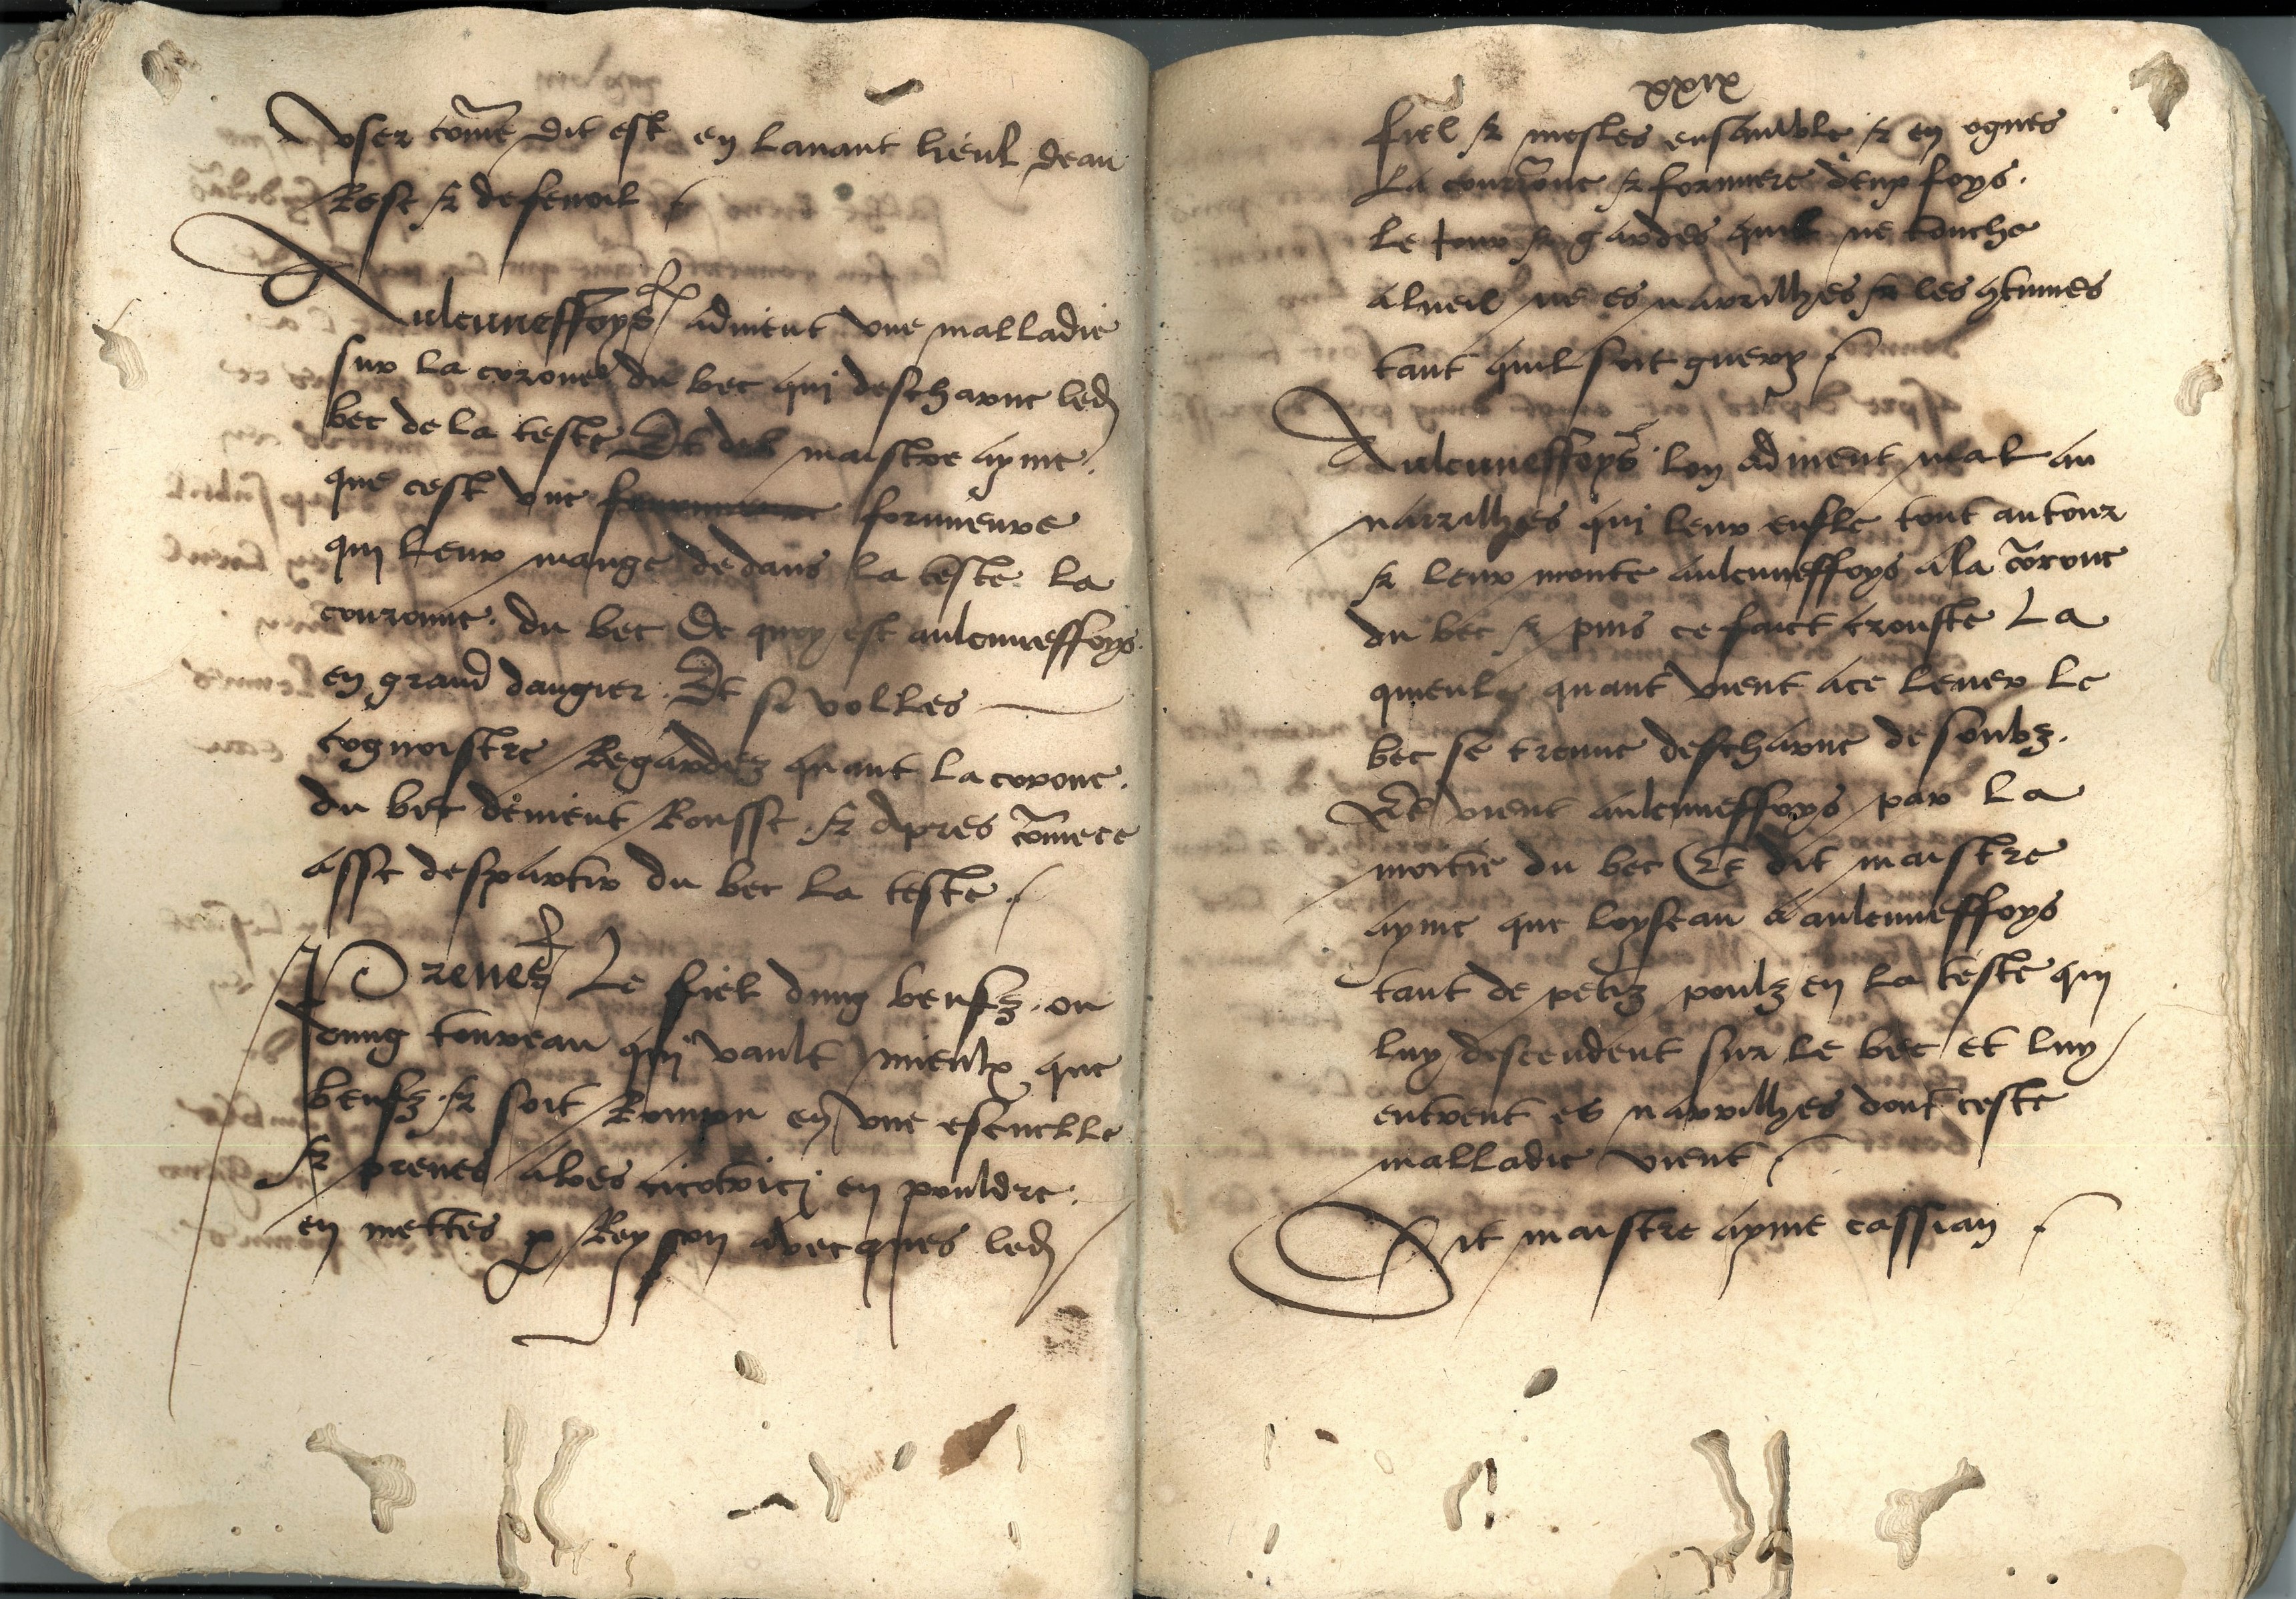 user com̃e dit est en lauant lieul deau
Rose & de fenoil
Aulcuneffoys aduient vne malladie
sur la corone du bec qui descharne led
bec de la teste Et dit maistre ayme
que cest vne formieure
qui leur mange dedans la teste la
couronne du bec De quoy est aulcuneffoys
en grand dangier Et si volles
cognoistre Regardez quant la corone
du bec deuient Rousse & apres com̃ece
asse despartir du bec la teste
Prenez Le fiel dung beufz ou
dung toureau qui vault mieulx que
beufz & soit Rompu en vne escuelle
& prenes aloes cicotrici en pouldre
en mettes p Reyson auecques led
xxix
fiel & mesles ensamble & en ognes
La couronne & formiere deux foys
le jour & gardes quil ne touche
alueil ne es narrilhes & les continues
tant quil soit guery
Aulcuneffoys lon aduient mal au
narrilhes qui leur enfle tout autour
& leur monte aulcuneffoys a la corone
du bec & puis ce faict crouste La
quieulx quant vient ace leuer le
bec se treuue descharne desoubz
Et vient aulcuneffoys par la
moitie du bec Et dit maistre
ayme que loyseau a aulcuneffoys
tant de petiz poulz en la teste qui
luy descendent sur le bec et luy
entrent es narrilhes dont ceste
malladie vient
Dit maistre ayme cassian